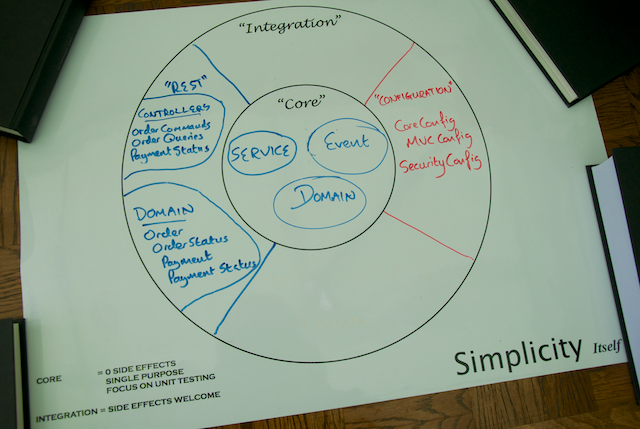 "Integration"
"REST"
CONTROLLERS
Order Commands
Order Queries
Payment Status
DOMAIN
Order
Order Status
Payment
Payment Status
"Core"
SERVICE
Event
DOMAIN
"CONFIGURATION"
Core Config
MVC Config
Security Config
CORE = 0 SIDE EFFECTS
SINGLE PURPOSE
FOCUS ON UNIT TESTING
INTEGRATION = SIDE EFFECTS WELCOME
Simplicity Itself